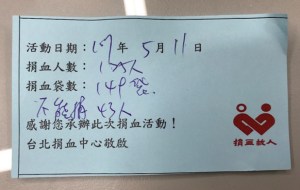 活動日期：107年 5月 11日
捐血人數：125人
捐血袋數：149袋
不能捐 43人
感謝您承辦此次捐血活動！
台北捐血中心敬啟
捐血救人